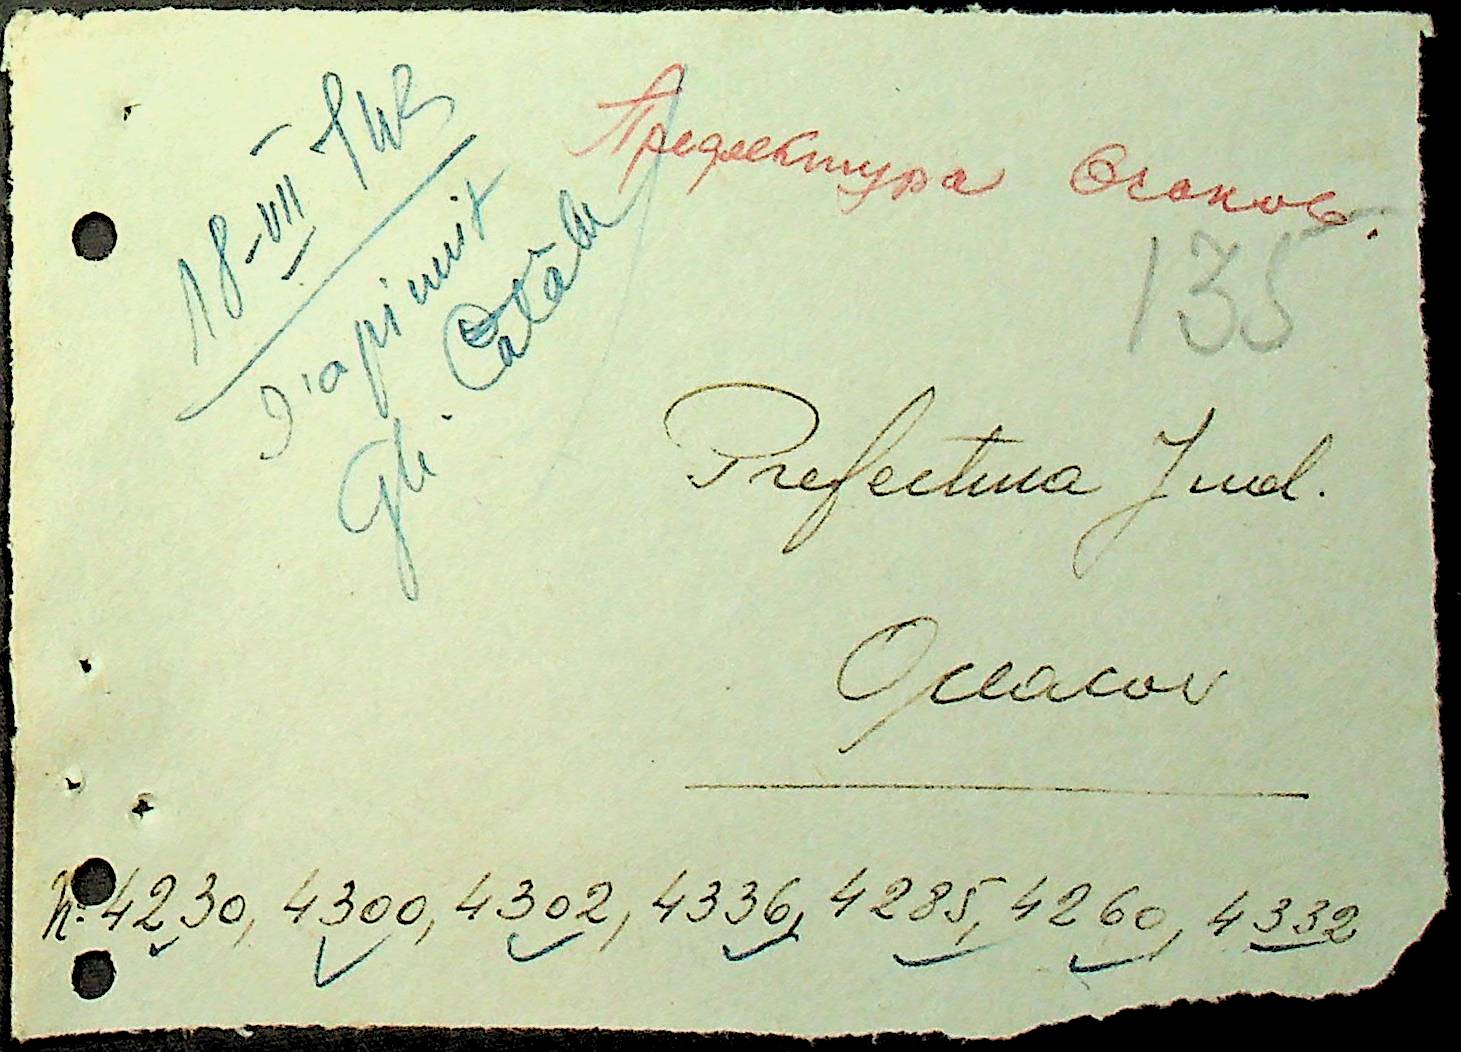 18-VII-942
S'a primit
Gh.
Префектура Очаков.
135
Prefectura Jud.
Oceacov
N. 4230, 4300, 4302, 4336, 4285, 4260, 4332